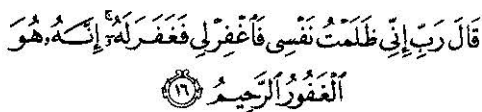 قَالَ رَبِّ إِنِّى ظَلَمْتُ نَفْسِى فَاغْفِرْ لِى فَغَفَرَ لَهُۥٓ ۚ إِنَّهُۥ هُوَ
الْغَفُورُ الرَّحِيمُ ﴿١٦﴾